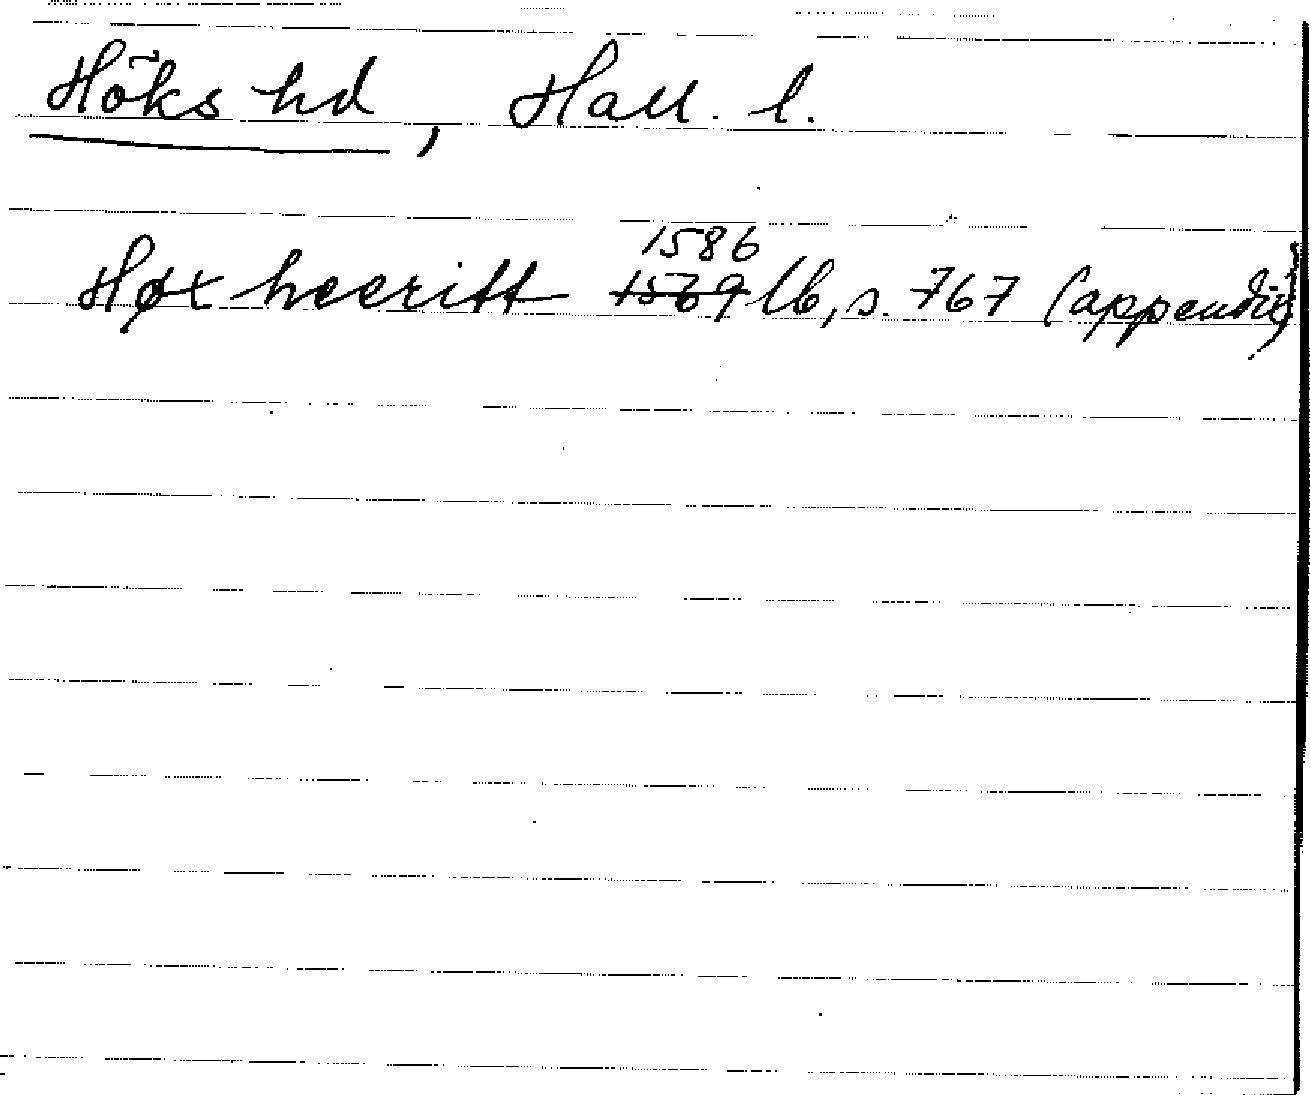 Höks hd, Hall. l.
1586
Høx heeritt 1569 lb, s. 767 (appendix)